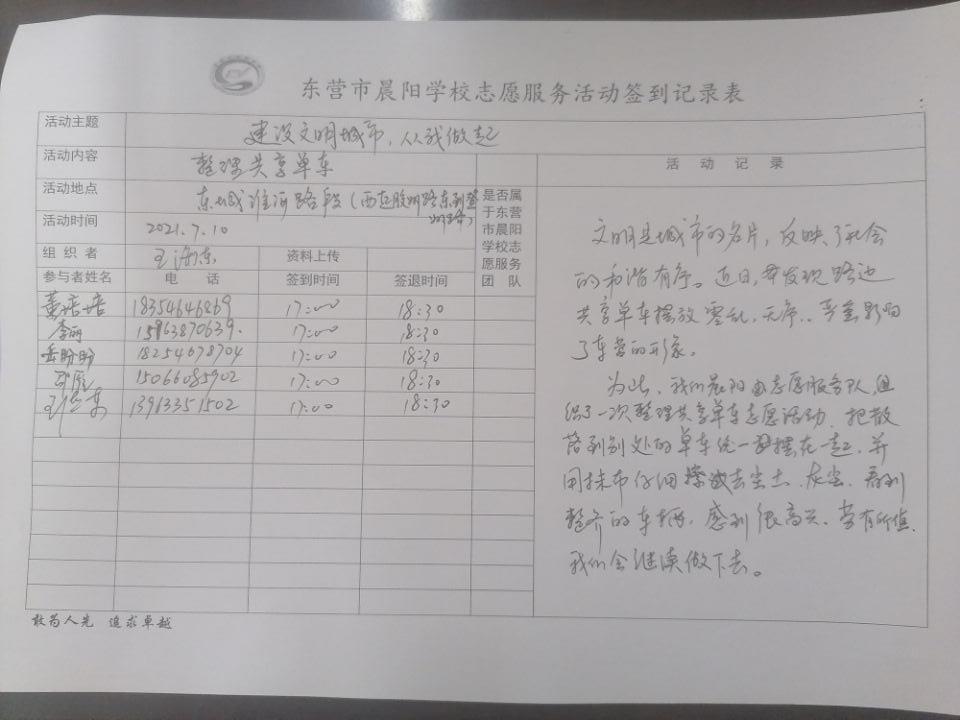 东营市晨阳学校志愿服务活动签到记录表
活动主题 建设文明城市，从我做起
活动内容 整理共享单车
活动地点 东城淮河路段（西起胶州路东到登州路）
活动时间 2021.7.10
组织者 王海东 资料上传
是否属于东营市晨阳学校志愿服务团队
参与者姓名 电话 签到时间 签退时间
董培培 18354646869 17:00 18:30
李丽 15963870639. 17:00 18:30
岳盼盼 18254678704 17:00 18:30
15066085902 17:00 18:30
13913351502 17:00 18:30
活动记录
文明是城市的名片，反映了社会
的和谐有序。近日，发现路边
共享单车摆放零乱，无序，严重影响
了东营的形象。
为此，我们晨阳志愿服务队，组
织了一次整理共享单车志愿活动，把散
落到别处的单车统一摆在一起，并
用抹布仔细擦去尘土、灰尘，看到
整齐的车辆，感到很高兴，劳有所值，
我们会继续做下去。
敢为人先 追求卓越